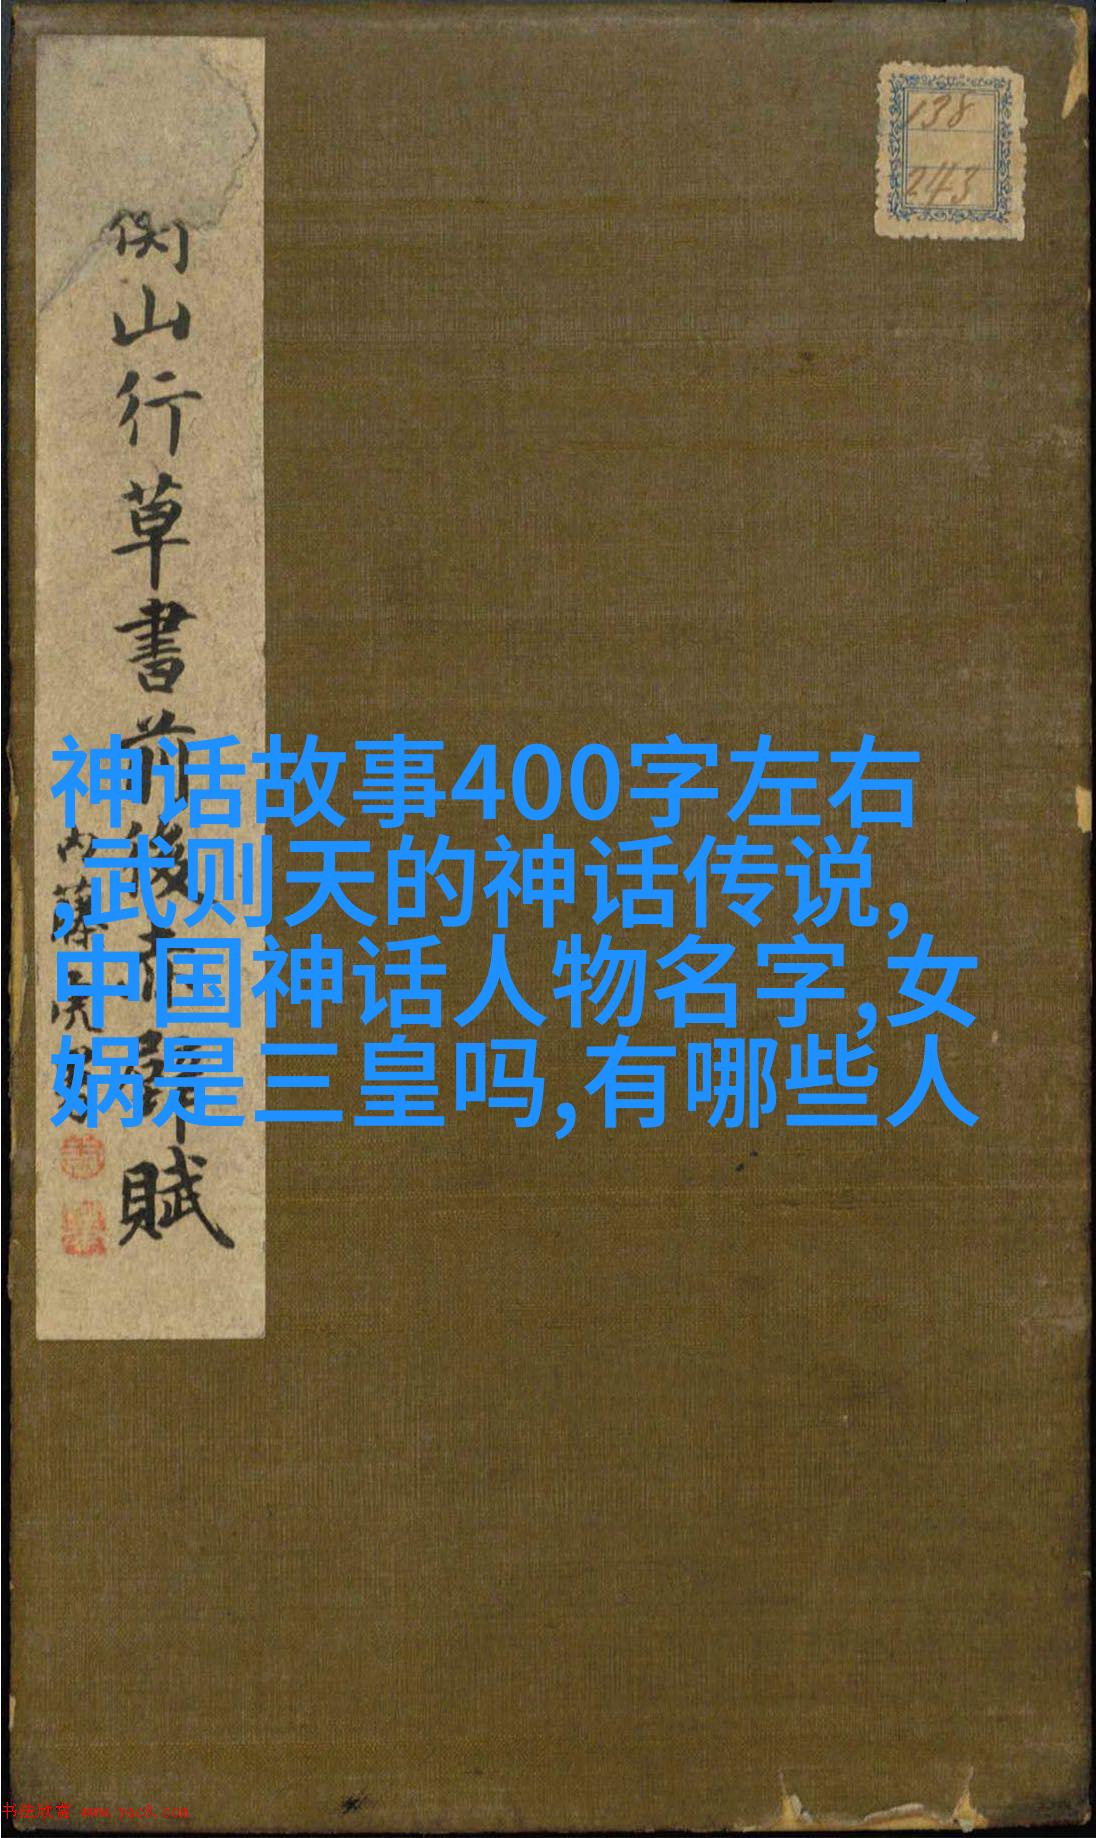 138
243
衡山行草書前後赤壁賦
内藤虎
神话故事400字左右
,武则天的神话传说,
中国神话人物名字,女
娲是三皇吗,有哪些人
书法欣赏 www.yac8.com